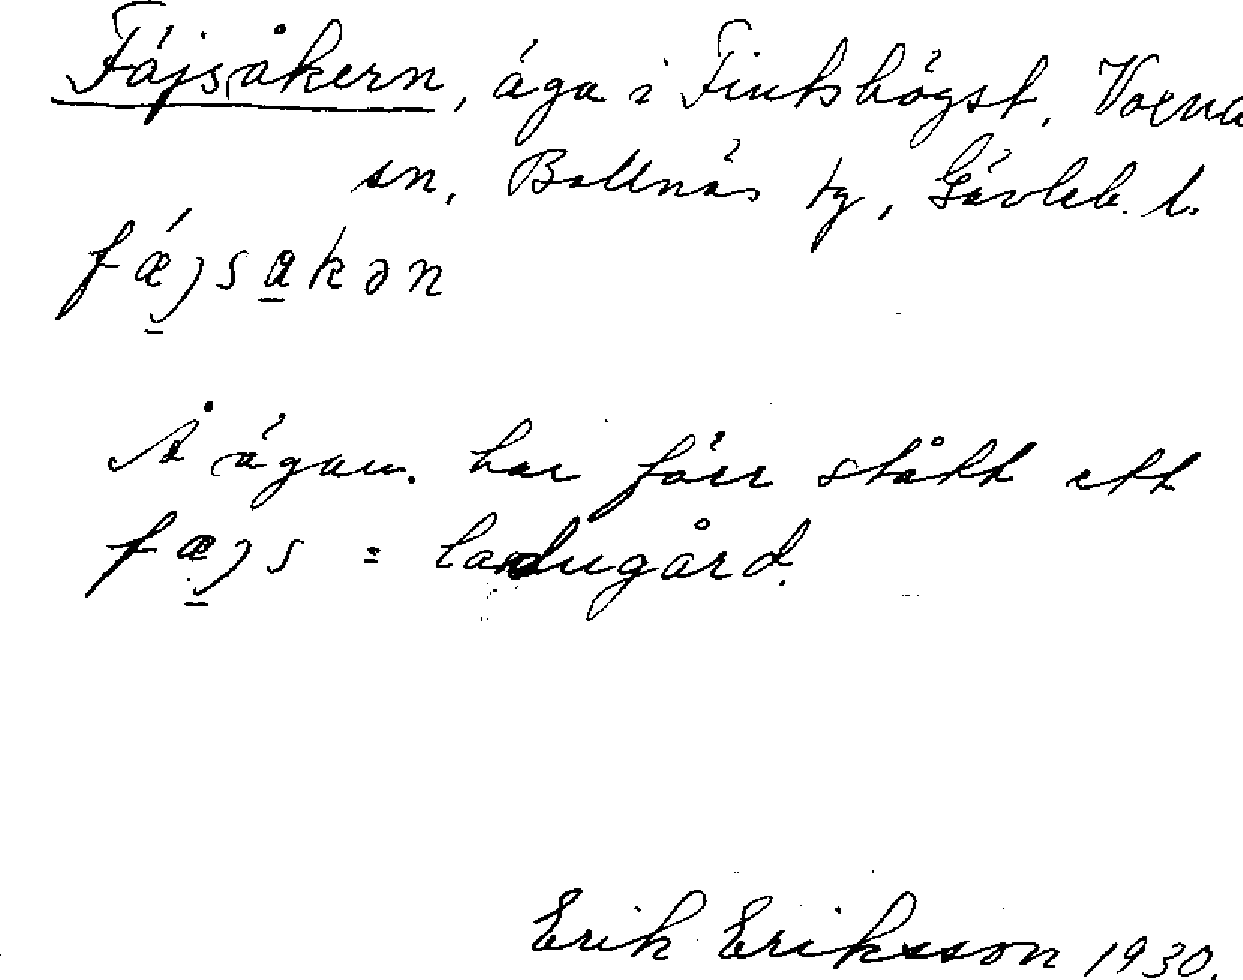 Fäjsåkern, äga i Voxna
sn, Bollnäs tg, Gävleb. l.
fǽjsa̲kən
Å ägan. har förr stått ett
fæjs = ladugård.
Erik Eriksson 1930.